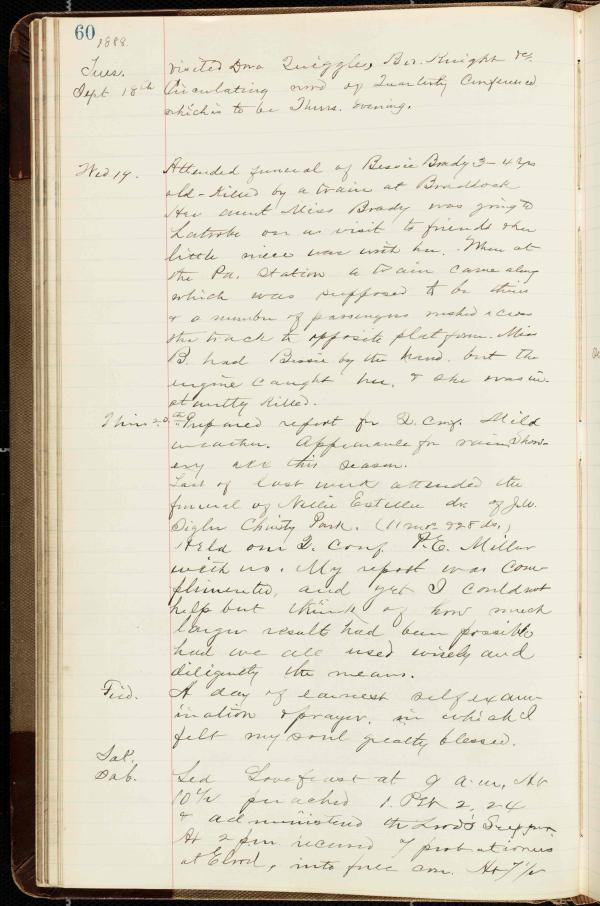 60
1888.
Tues. visited Dora Quiggle, Bro. Knight &c.
Sept 18th Circulating word of Quarterly Conference
which is to be Thurs. evening.
Wed 19. Attended funeral of Bessie Brady 3-4 yrs
old - killed by a train at Braddock
Her aunt Miss Brady was going to
Latrobe on a visit to friends & her
little niece was with her. When at
the Pa. Station a train came along
which was supposed to be theirs
& a number of passengers rushed across
the track to opposite platform. Miss
B. had Bessie by the hand. but the
engine caught her, & she was in-
stantly killed.
Thurs 20th Prepared report for Q. Conf. Mild
weather. Appearance for rain. Show-
ery all this season.
Last of last week attended the
funeral of Nellie Estella dr. of J.W.
Christy Park. (11 mos 28 ds.)
Held our Q. Conf. Miller
with us. My report was com-
plimented, and yet I could not
help but think of how much
larger results had been possible
had we all used wisely and
diligently the means.
Frid. A day of earnest self exam-
ination & prayer, in which I
felt my soul greatly blessed.
Sat.
Sab. Led Lovefeast at 9 a.m. At
10 1/2 preached 1. Pet 2, 24
& administered the Lord's Supper.
At 2 pm. received 7 probationers
at Elrod, into full con. At 7 1/2